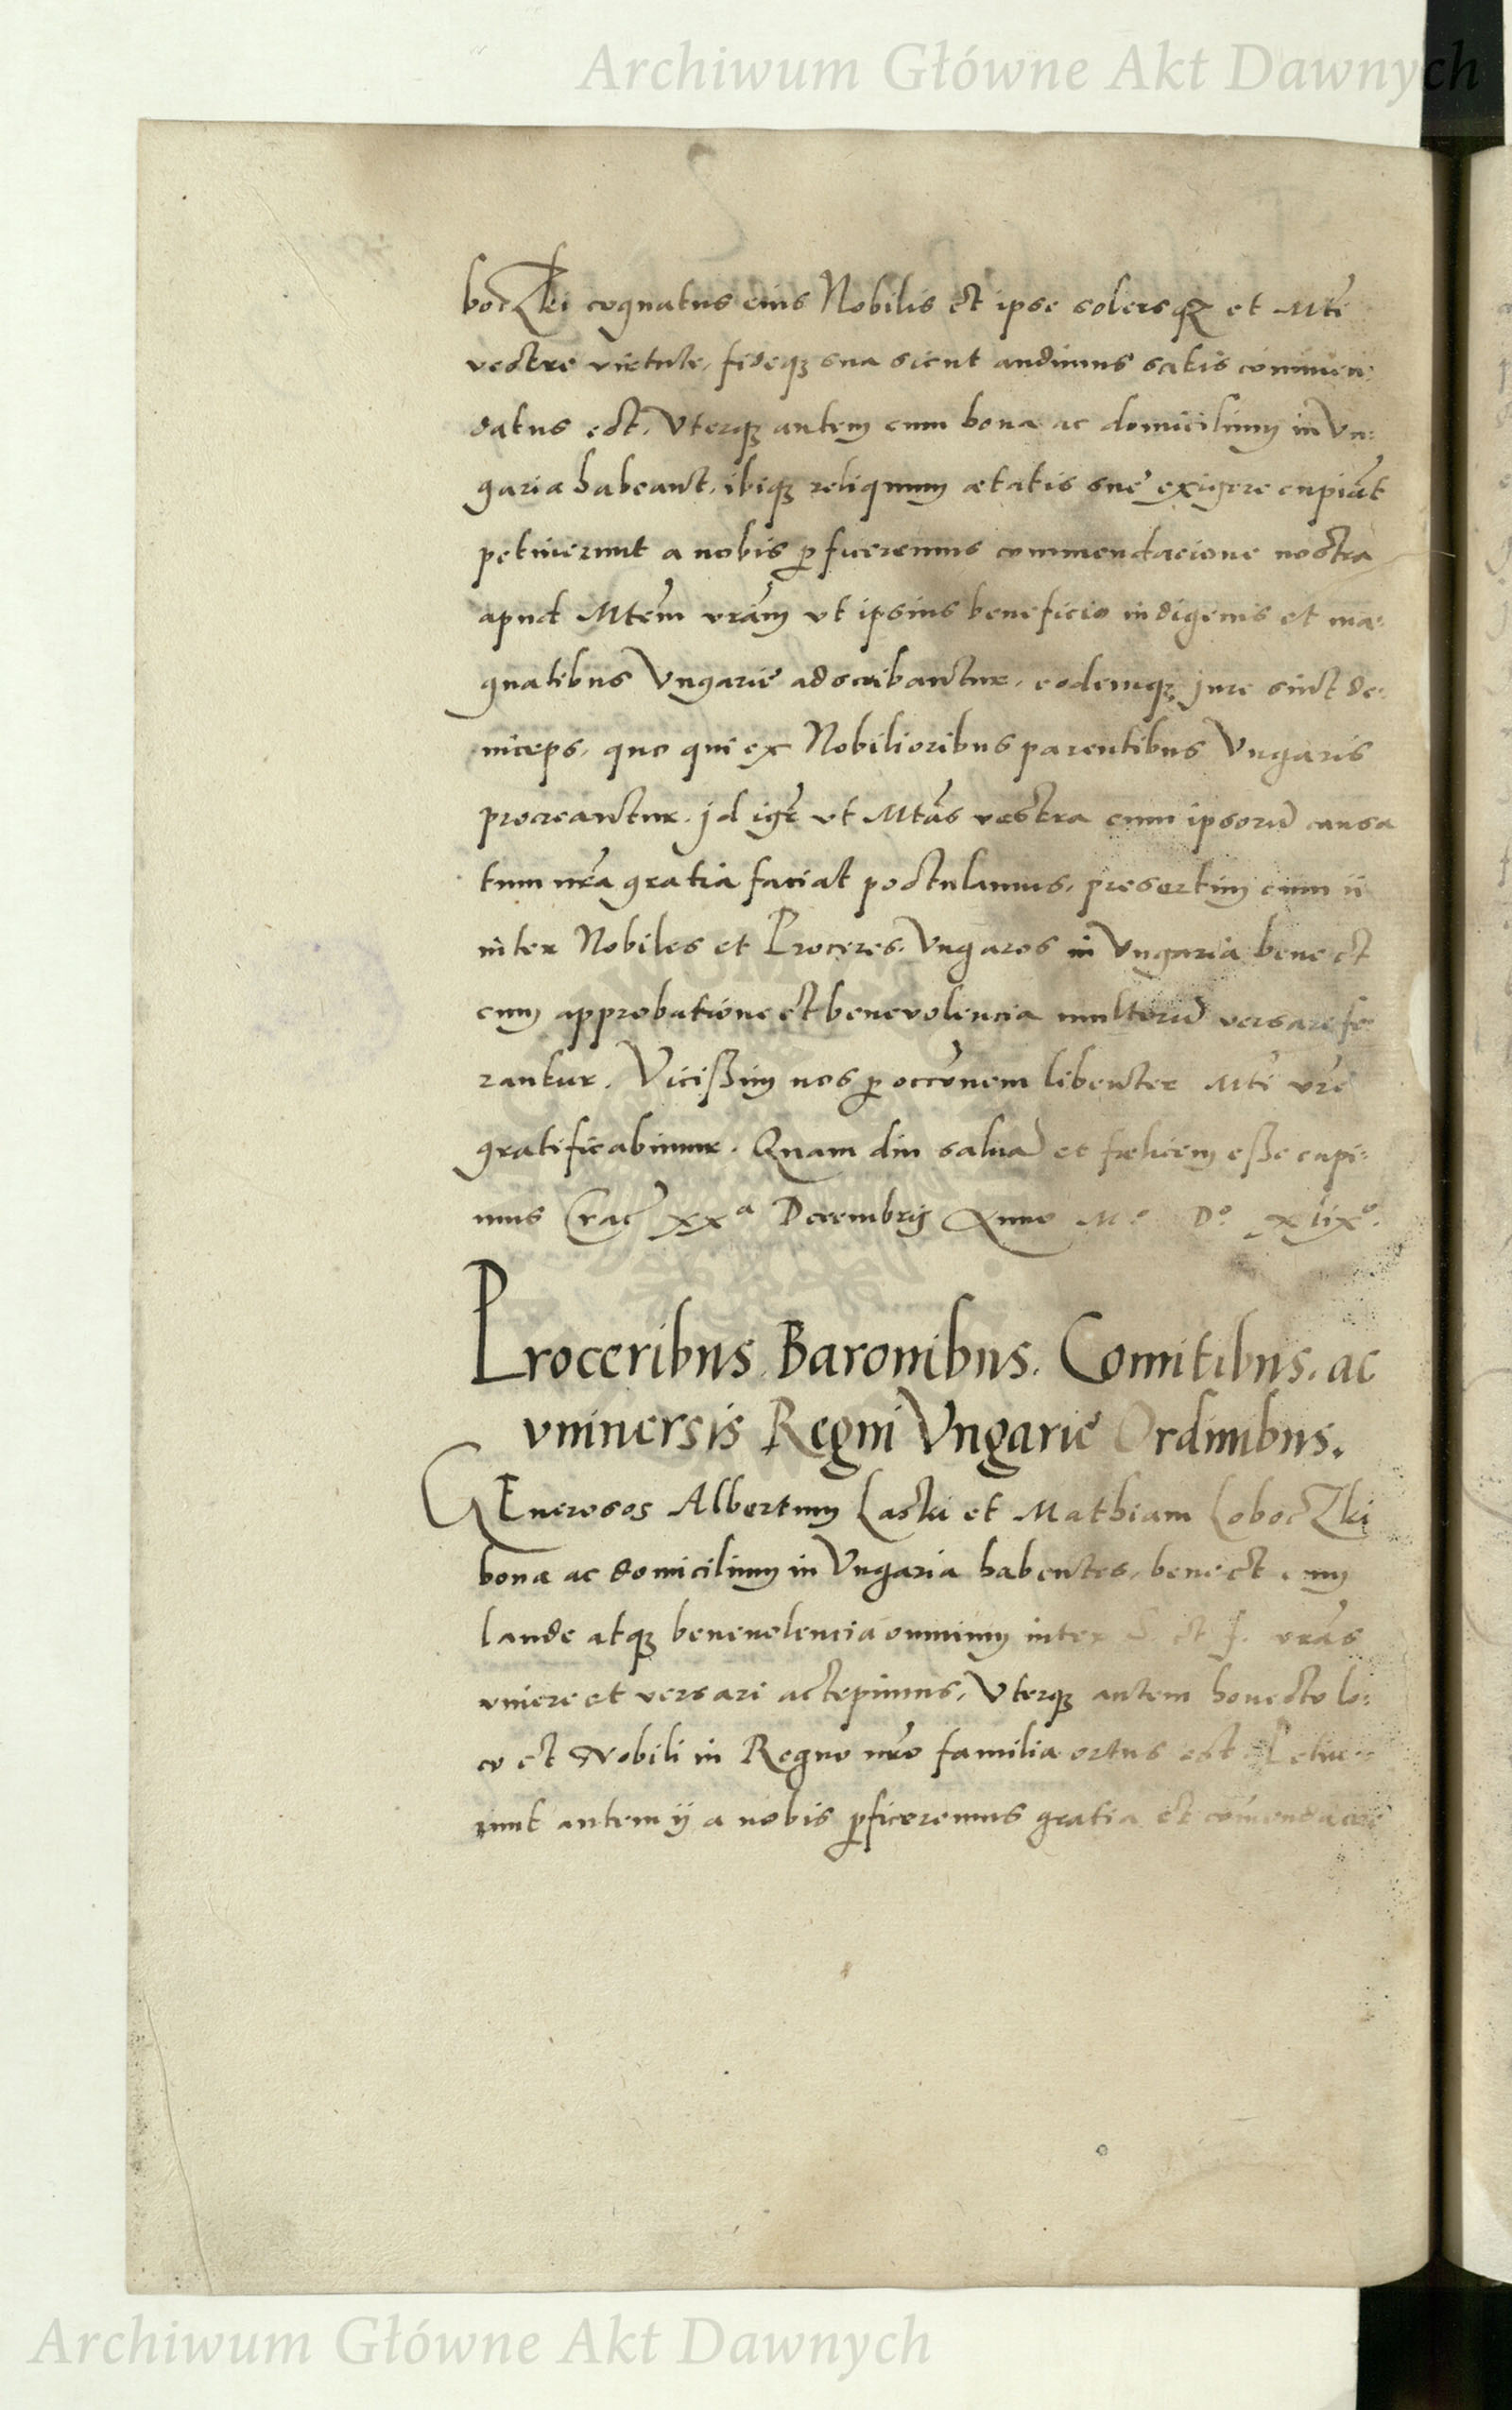 Archiwum Główne Akt Dawnych
boczki cognatus eius Nobilis et ipse solersqȝ et Mti
vestre virtute, fideqȝ sua sicut audimus satis commen:
datus est, Vterqȝ autem cum bona ac domicilium in Vn:
garia habeant, ibiqȝ reliquum ætatis suę exigere cupiāt
petiuerunt a nobis ꝓficeremus commendacione nostra
apud Mtem vrām vt ipsius beneficio indigenis et ma:
gnatibus Vngarię adscribantur, eodemqȝ jure sint de:
niceps, quo qui ex Nobilioribus parentibus Vngaris
procreantur. jd igr vt Mtas vestra cum ipsorū causa
tum nrā gratia faciat postulamus, presertim cum ii
inter Nobiles et Proceres Vngaros in Vngaria bene et
cum approbatione et benevolencia multorū versari fe
rantur. Vicissim nos ꝑ occōnem libenter Mti vrę
gratificabimur. Quam diu saluā et fœlicem esse cupi:
mus Crac xxa Decembris Anno Mo Do xlixo.
Proceribus Baronibus. Comitibus. ac
vniuersis Regni Vngarię Ordinibus.
GEnerosos Albertum Laski et Mathiam Loboczki
bona ac domicilium in Vngaria habentes, bene et cum
laude atqȝ beneuolencia omnium inter S. et F. vrās
viuere et versari accepimus, Vterqȝ autem honesto lo:
co et Nobili in Regno nrō familia ortus est Petiue:
runt autem ij a nobis ꝓficeremus gratia et cōmendacōe
Archiwum Główne Akt Dawnych